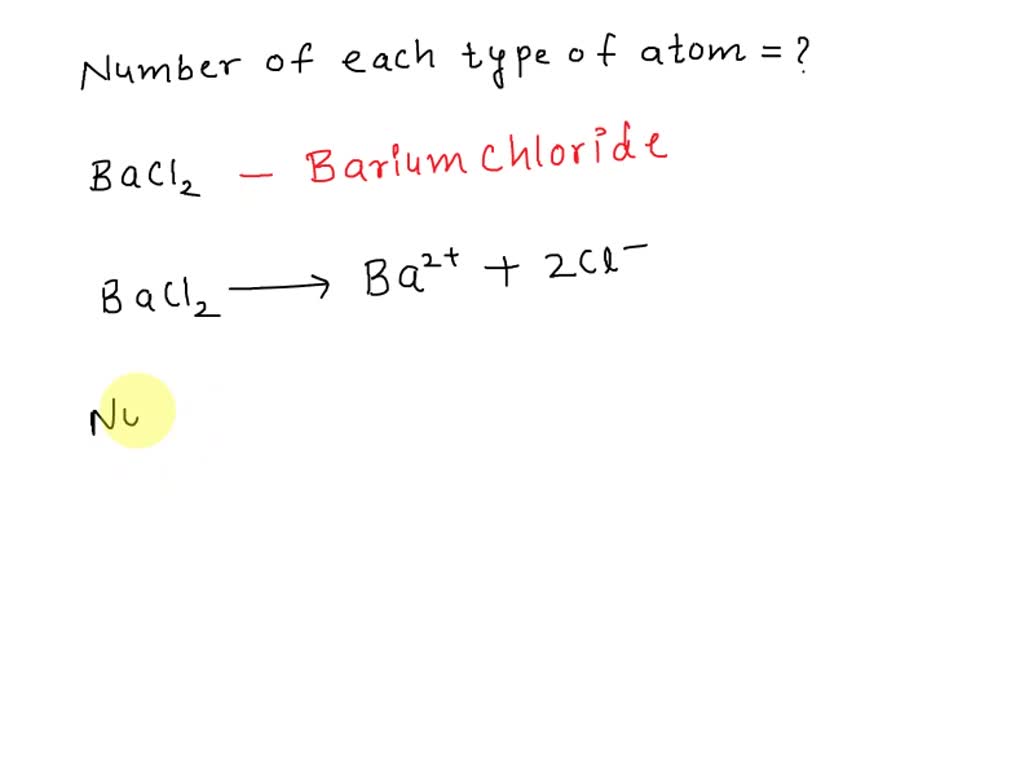 Number of each type of atom = ?
BaCl₂ — Barium chloride
BaCl₂ ⟶ Ba²⁺ + 2Cl⁻
Nu